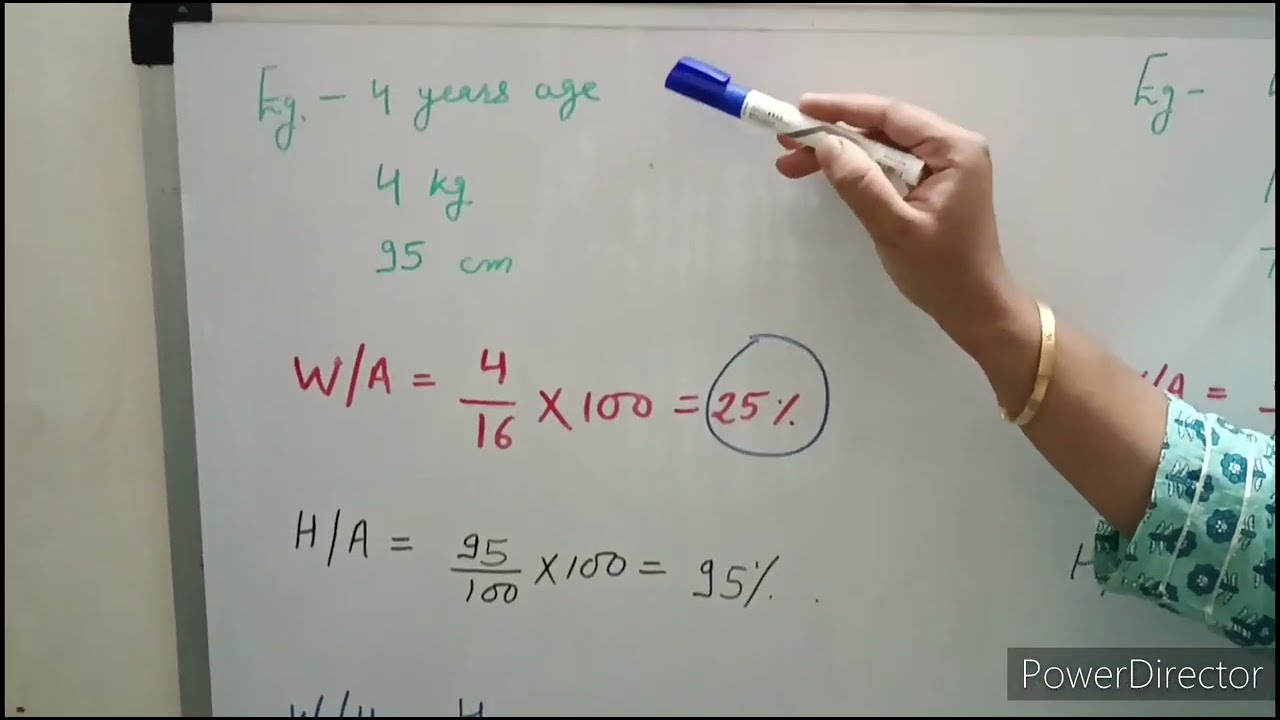 Eg. - 4 years age
4 kg
95 cm
W/A = 4/16 X 100 = 25%
H/A = 95/100 X 100 = 95%.
Eg -
/A =
H
PowerDirector